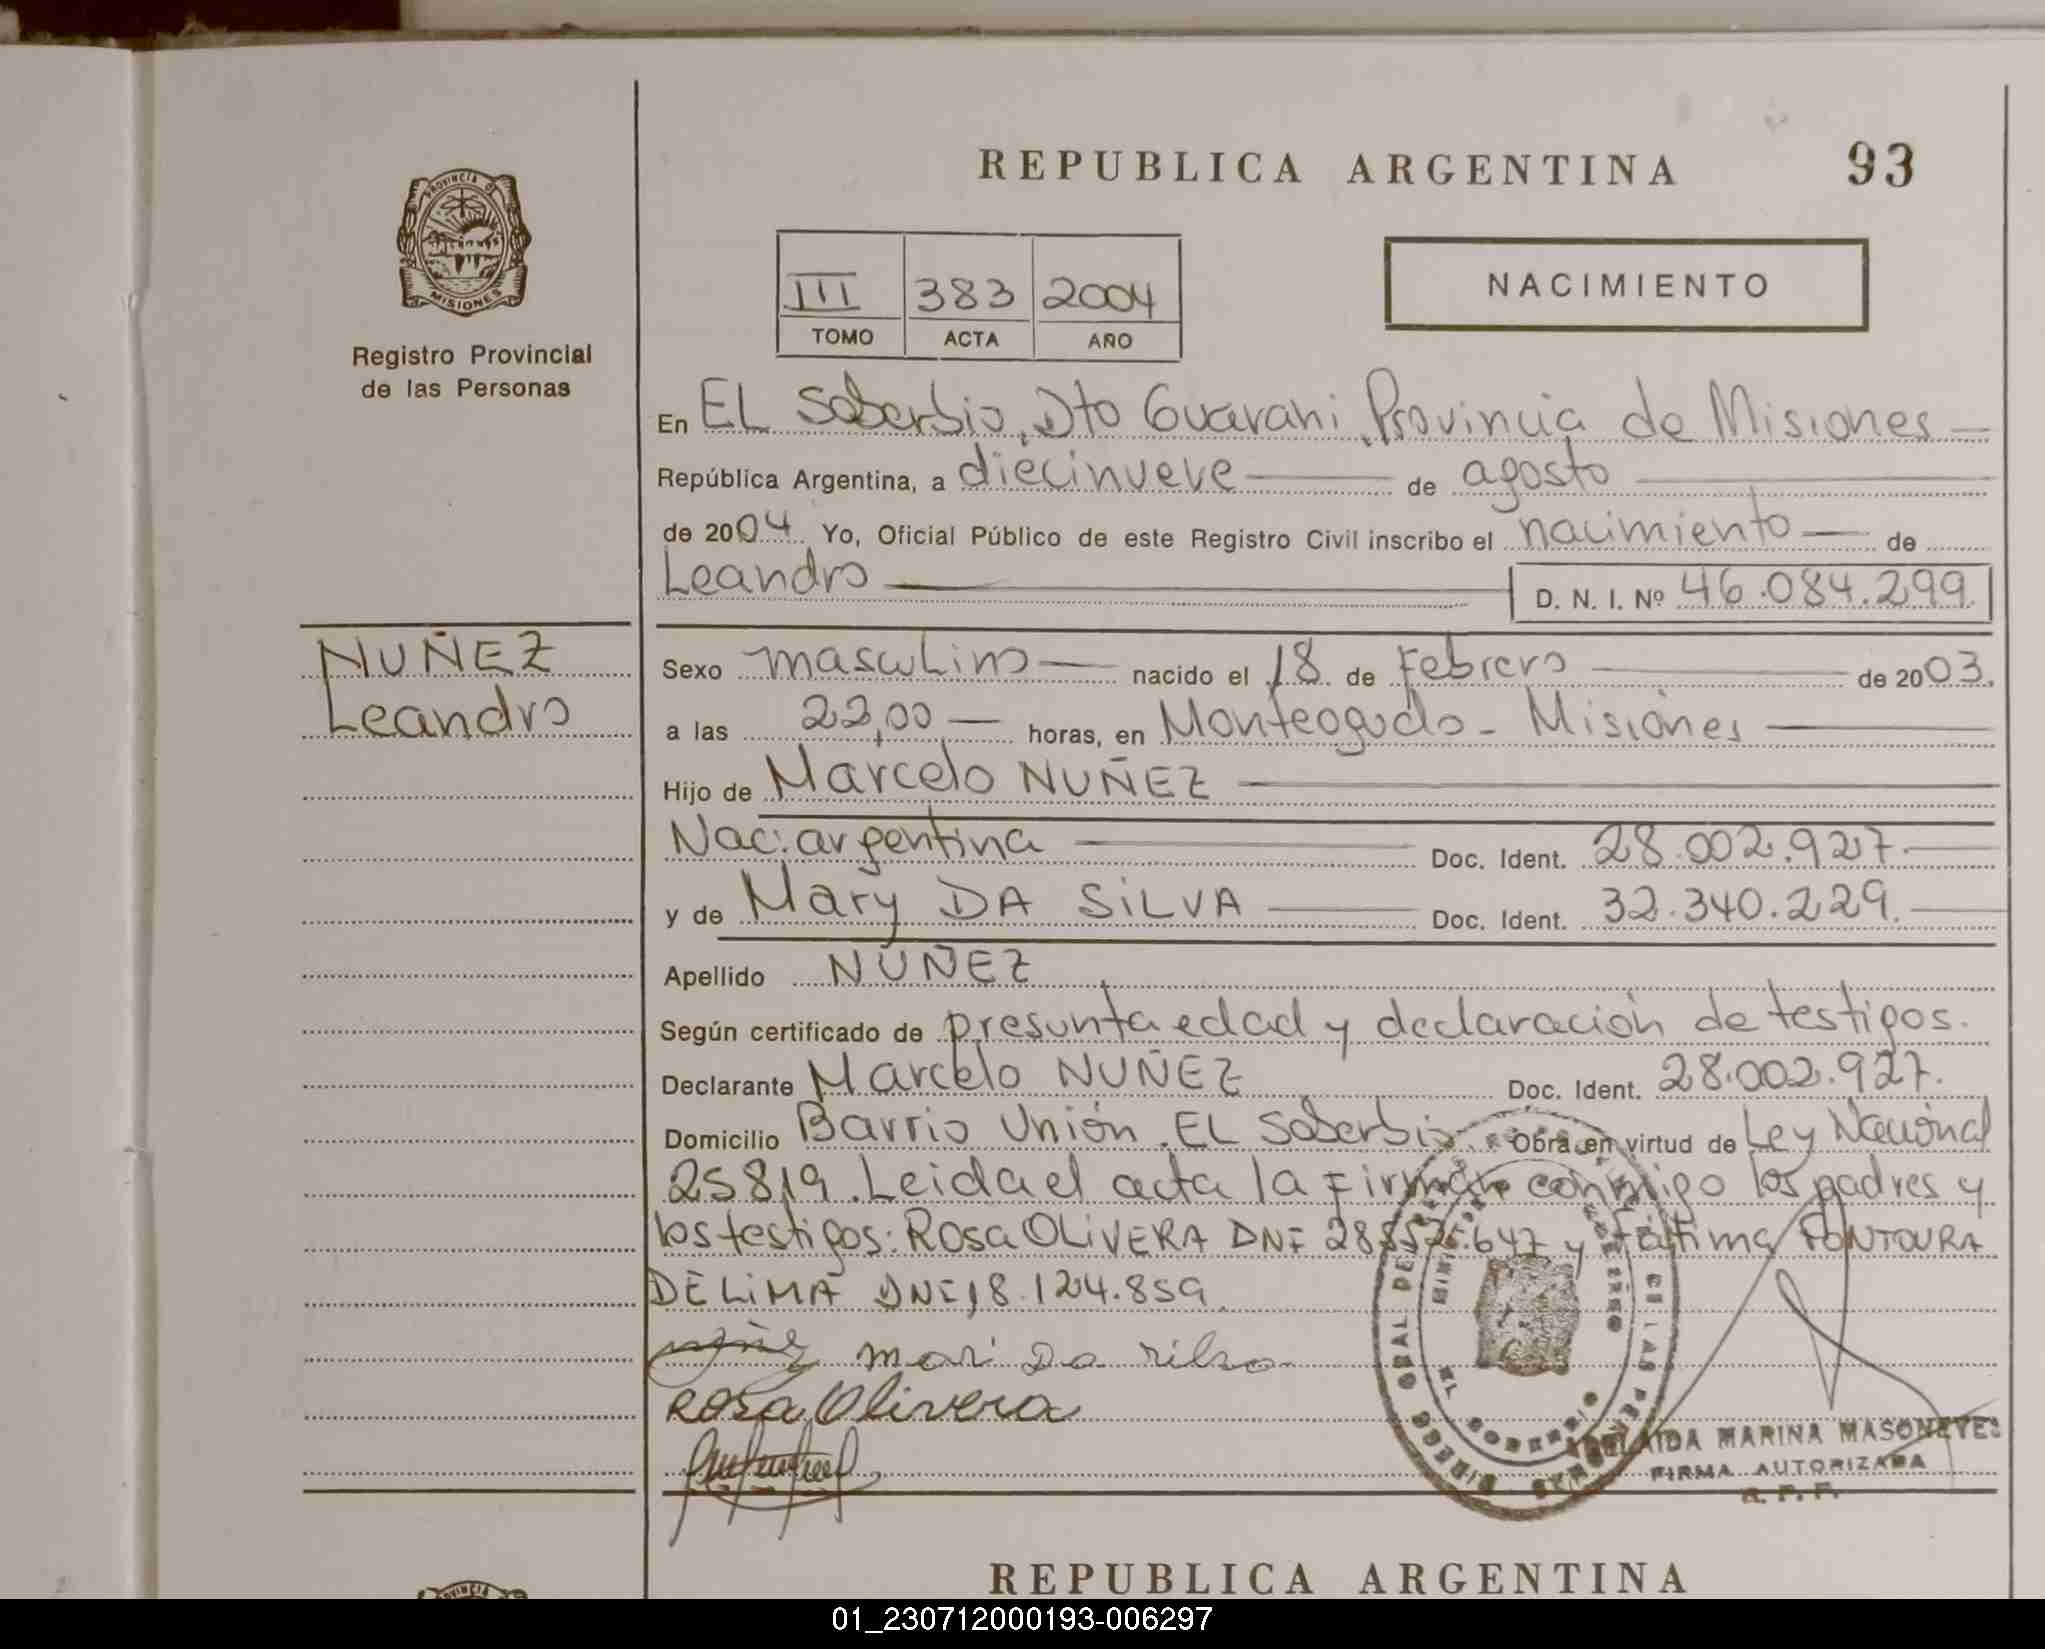 REPUBLICA ARGENTINA 93
PROVINCIA DE
MISIONES
Registro Provincial
de las Personas
III 383 2004
TOMO ACTA AÑO
NACIMIENTO
En EL Soberbio, Dto Guarani, Provincia de Misiones
República Argentina, a diecinueve de agosto
de 2004 Yo, Oficial Público de este Registro Civil inscribo el nacimiento de
Leandro D. N. I. Nº 46.084.299.
NUÑEZ
Leandro
Sexo masculino nacido el 18 de Febrero de 2003.
a las 22,00 horas, en Monteagudo - Misiones
Hijo de Marcelo NUÑEZ
Nac: argentina Doc. Ident. 28.002.927.
y de Mary DA SiLVA Doc. Ident. 32.340.229.
Apellido NUÑEZ
Según certificado de presunta edad y declaración de testigos.
Declarante Marcelo NUÑEZ Doc. Ident. 28.002.927.
Domicilio Barrio Unión. EL Soberbio. Obra en virtud de Ley Nacional
25819. Leida el acta la Firman conmigo los padres y
los testigos: Rosa OLiVERA DNI y Fatima FONTOURA
DE LiMA DNI 18.124.859.
mari Da silva
Rosa Olivera
MARINA MASONEVES
FIRMA AUTORIZADA
REPUBLICA ARGENTINA
01_230712000193-006297